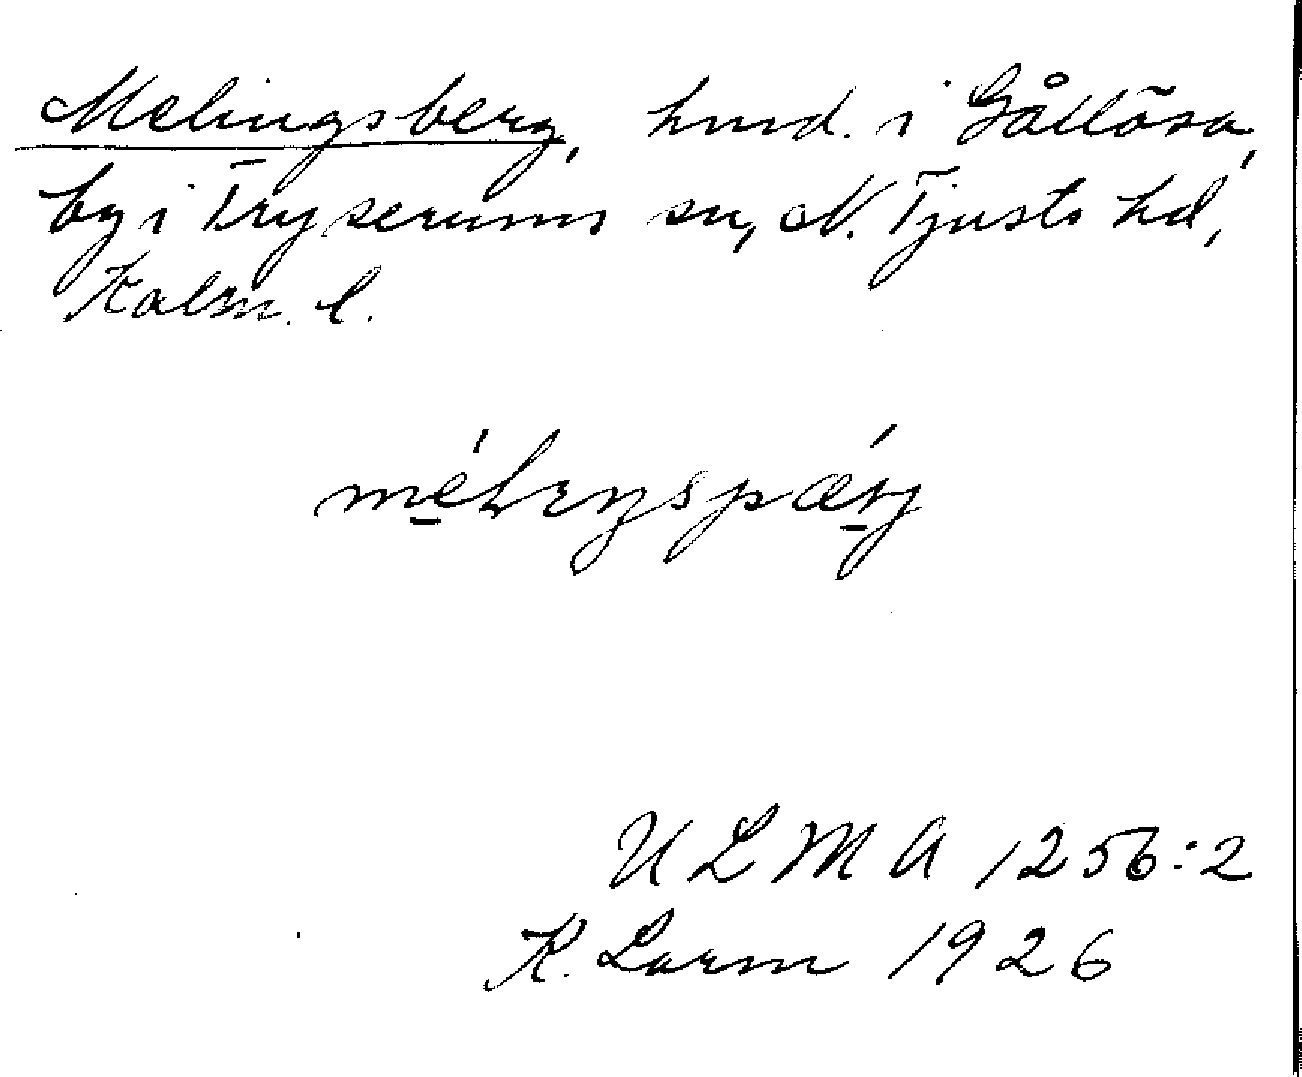 Melingsberg, hmd. i Gållösa,
by i Tryserums sn, N. Tjusts hd,
Kalm. l.
U L M A 1256:2
K. Larm 1926